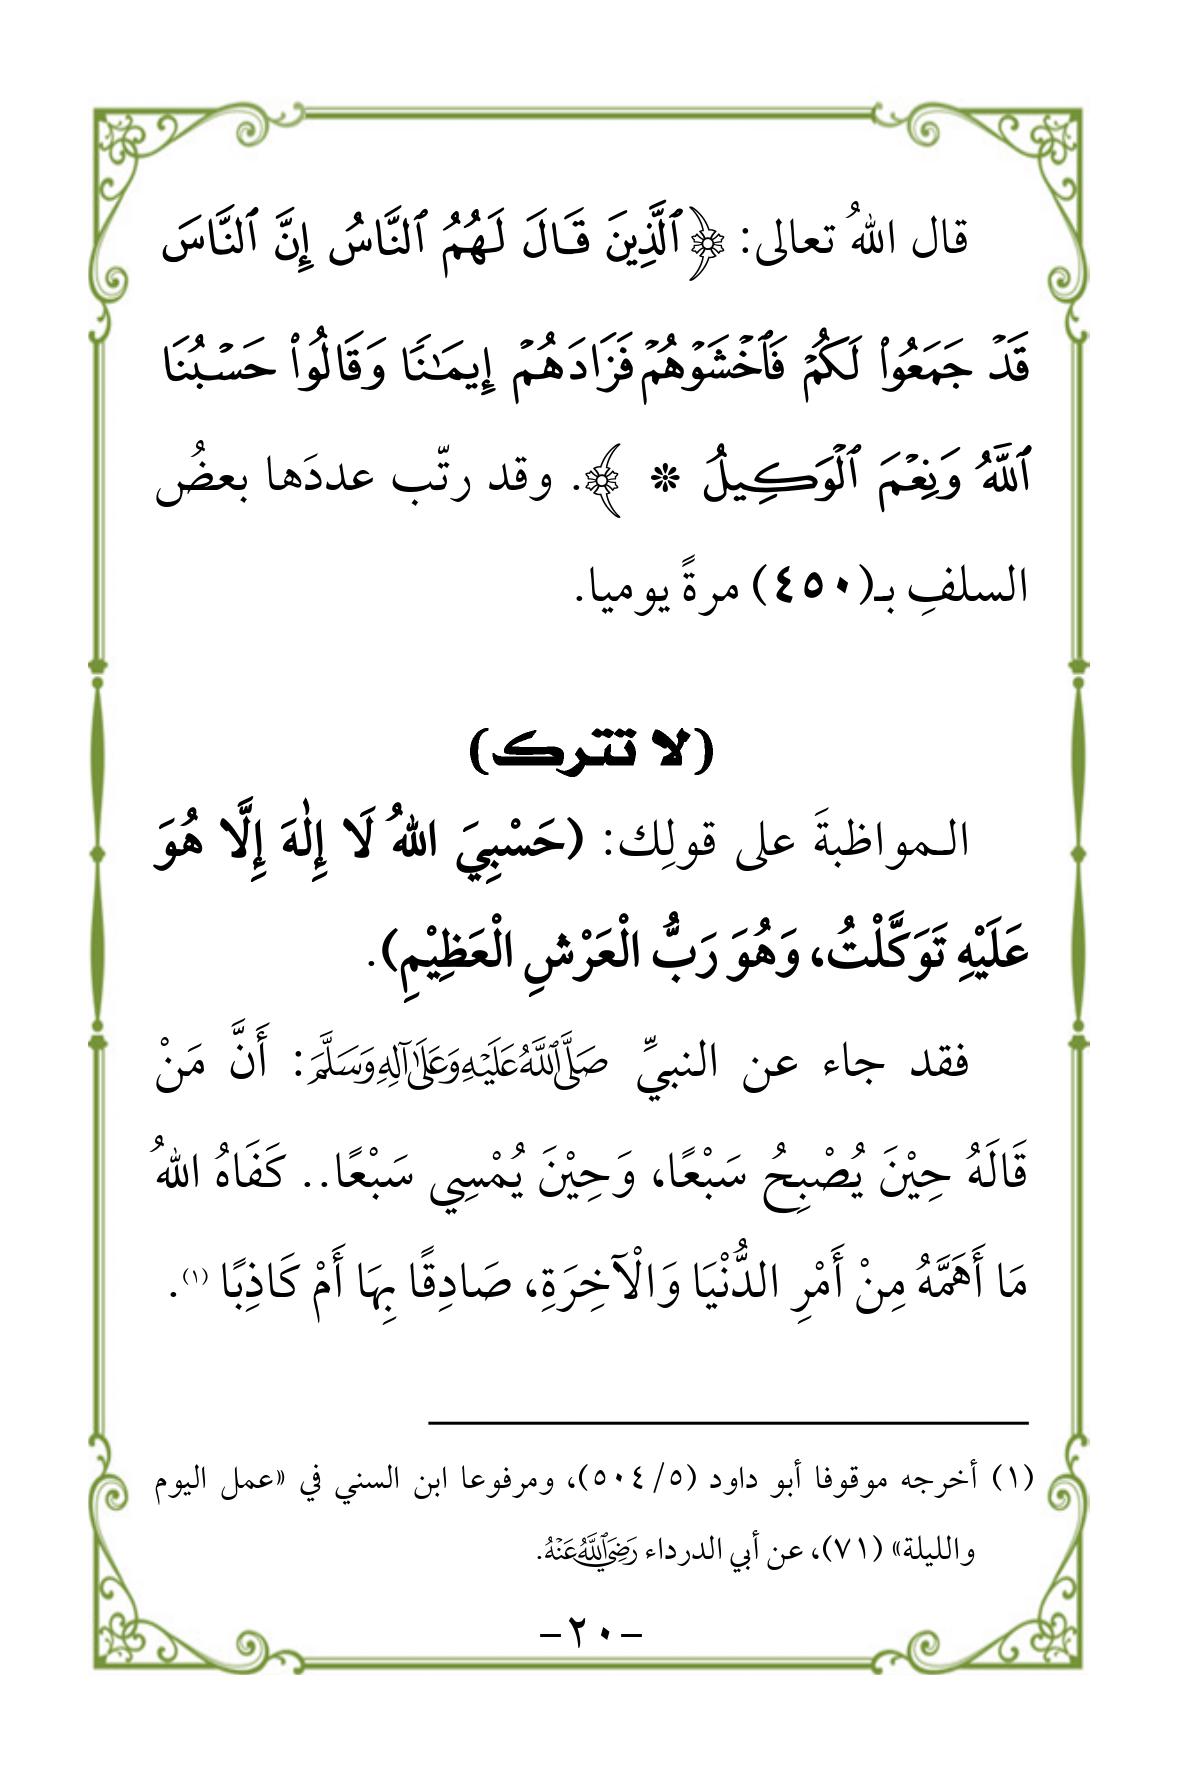 قال اللهُ تعالى: ﴿ٱلَّذِينَ قَالَ لَهُمُ ٱلنَّاسُ إِنَّ ٱلنَّاسَ
قَدۡ جَمَعُواْ لَكُمۡ فَٱخۡشَوۡهُمۡ فَزَادَهُمۡ إِيمَـٰنًا وَقَالُواْ حَسۡبُنَا
ٱللَّهُ وَنِعۡمَ ٱلۡوَكِيلُ * ﴾. وقد رتّب عددَها بعضُ
السلفِ بـ(٤٥٠) مرةً يوميا.
(لا تترك)
الـمواظبةَ على قولِك: (حَسْبِيَ اللهُ لَا إِلٰهَ إِلَّا هُوَ
عَلَيْهِ تَوَكَّلْتُ، وَهُوَ رَبُّ الْعَرْشِ الْعَظِيْمِ).
فقد جاء عن النبيِّ صَلَّى ٱللَّهُ عَلَيْهِ وَعَلَىٰ آلِهِ وَسَلَّمَ: أَنَّ مَنْ
قَالَهُ حِيْنَ يُصْبِحُ سَبْعًا، وَحِيْنَ يُمْسِي سَبْعًا.. كَفَاهُ اللهُ
مَا أَهَمَّهُ مِنْ أَمْرِ الدُّنْيَا وَالْآخِرَةِ، صَادِقًا بِهَا أَمْ كَاذِبًا (١).
(١) أخرجه موقوفا أبو داود (٥/ ٥٠٤)، ومرفوعا ابن السني في «عمل اليوم
والليلة» (٧١)، عن أبي الدرداء رَضِيَ ٱللَّهُ عَنْهُ.
-٢٠-